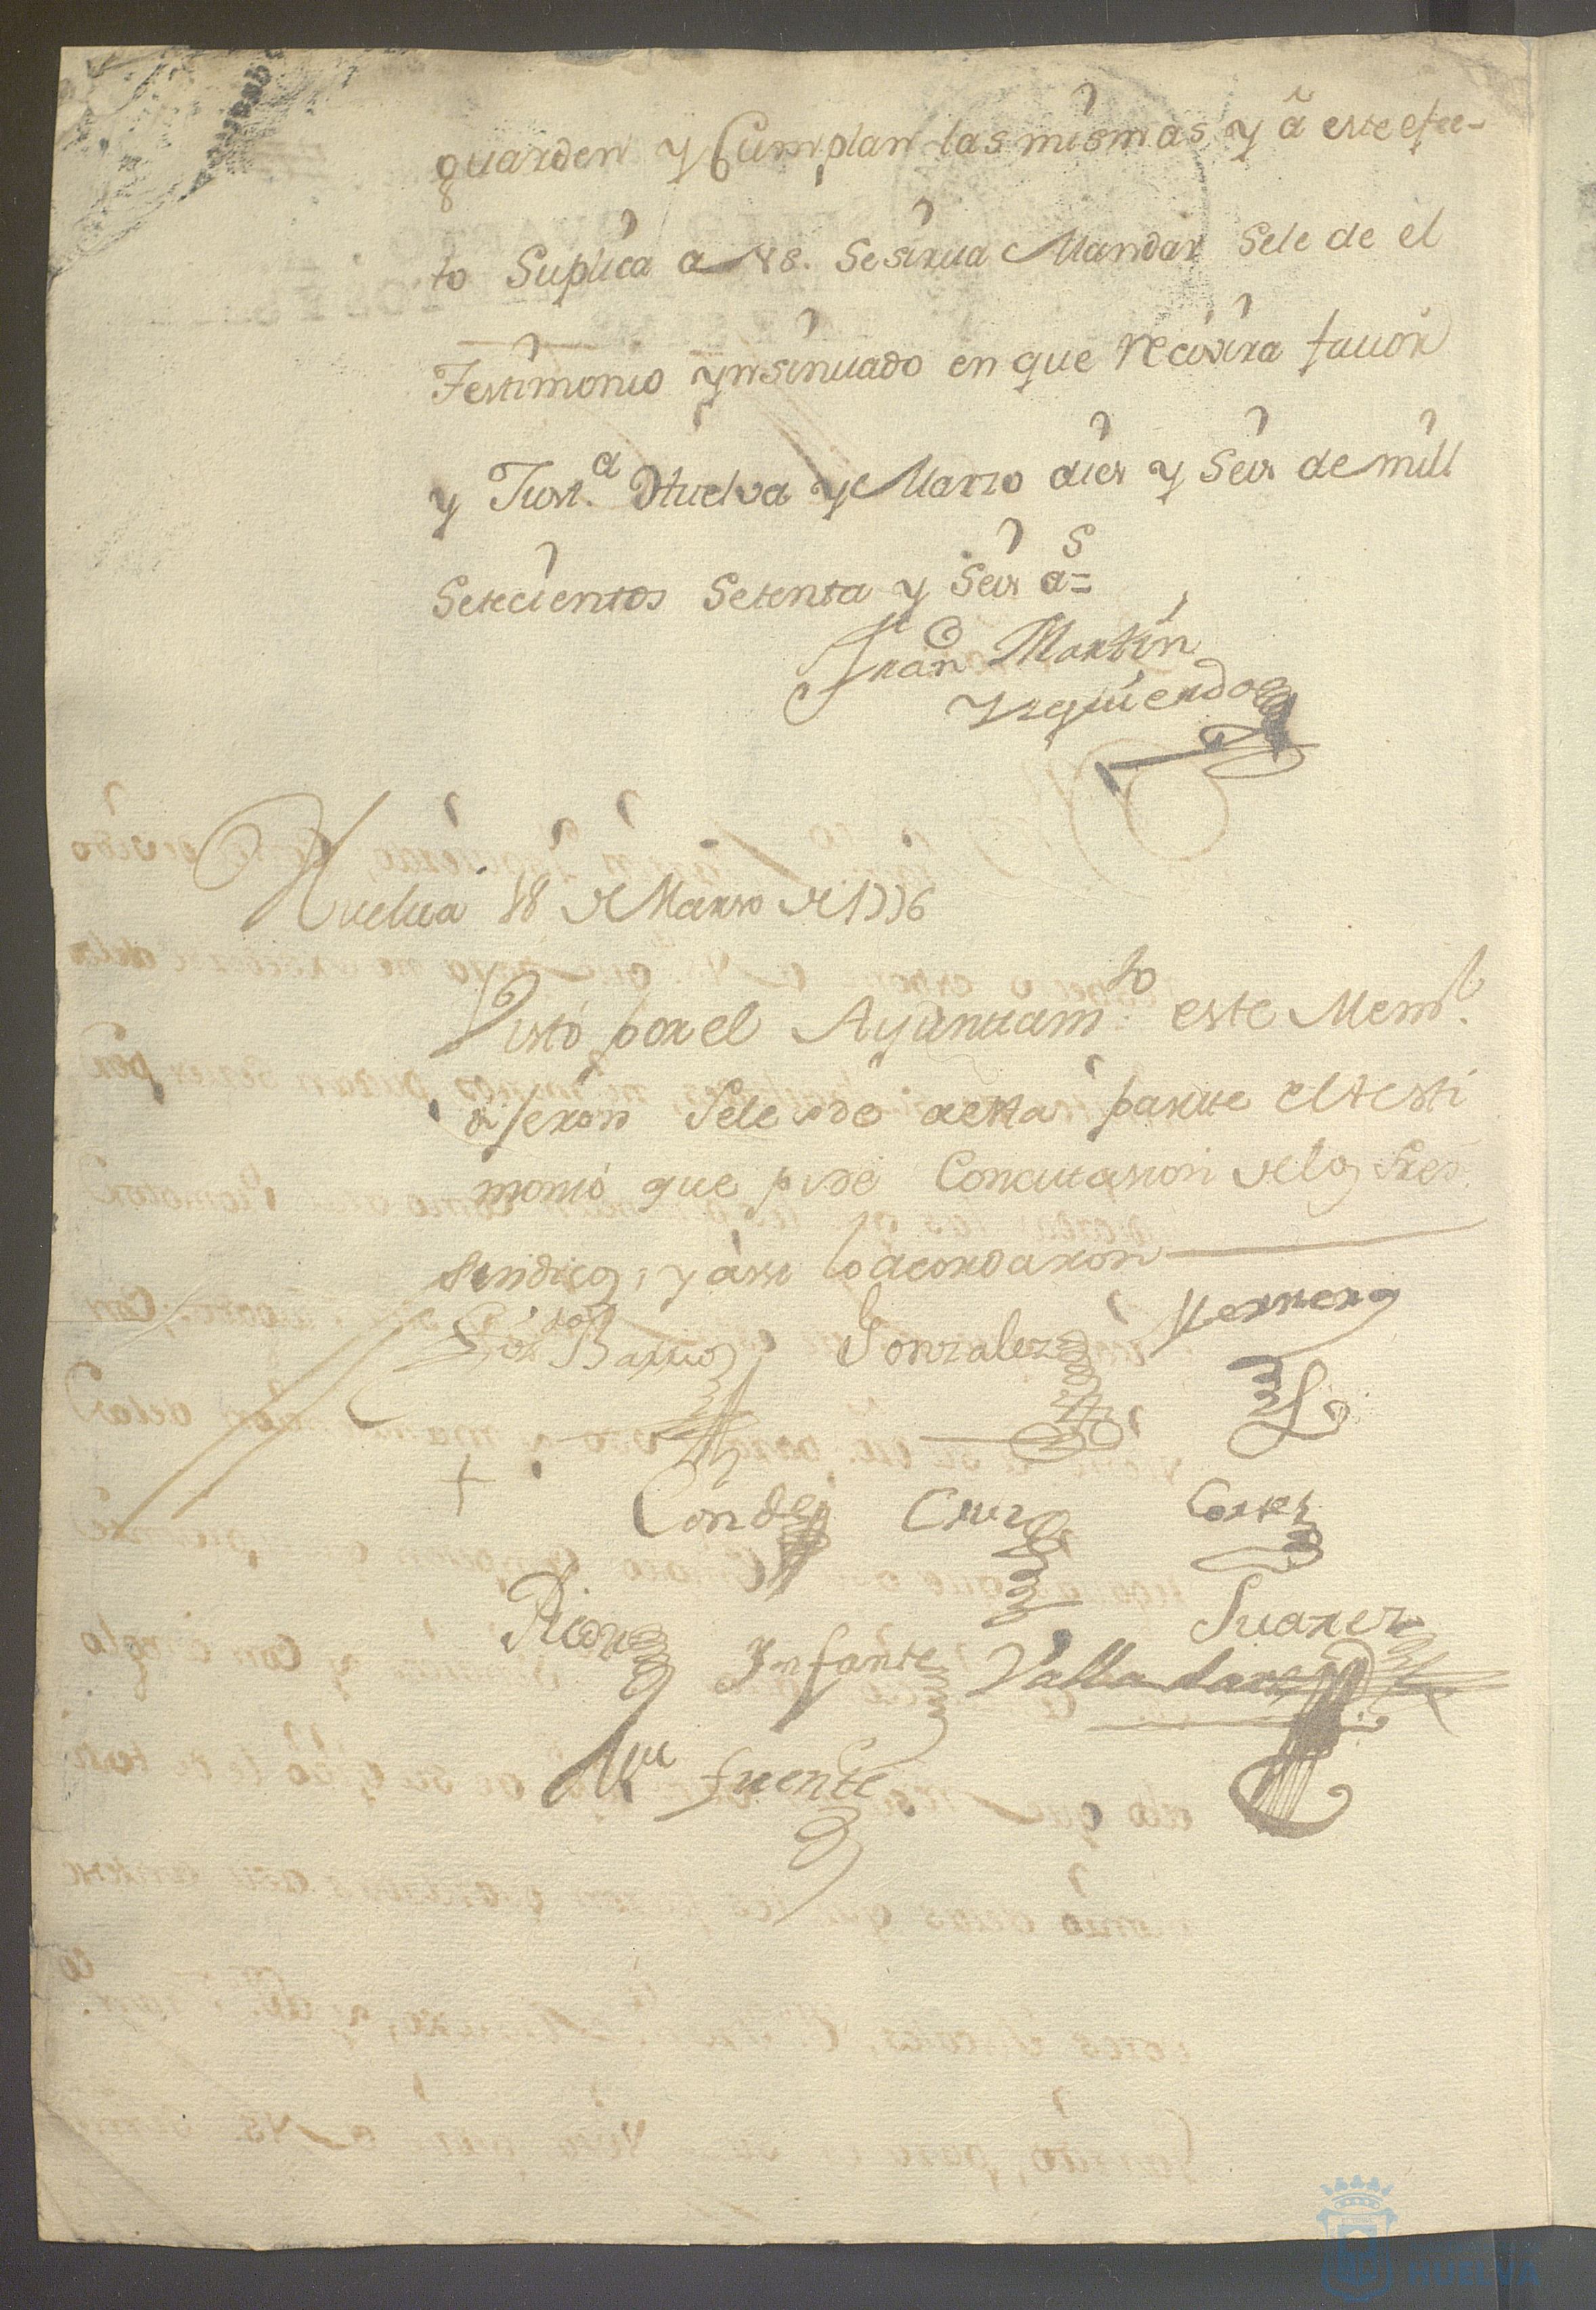 guarden y Cumplan las mismas y â este efec-
to Suplica a VS. Se sirua Mandar Sele de el
Testimonio ynsinuado en que recivira fauor
y Just.ª Huelva y Marzo dies y Seis de mill
Setecientos Setenta y Seis a.s=
Fran.co Martin
Yzquierdo
Huelua 18 de Marzo de 1776
Visto por el Ayuntiam.to este Mem.l
dixeron Sele de desta parte el testi
monio que pide Concitasion de los Sres.
sindicos, y assi lo acordaron
Barrio Gonzalez Herrera
Conde Cruz Cortes
Picon Infante Valladares Suarez
fuente
HUELVA